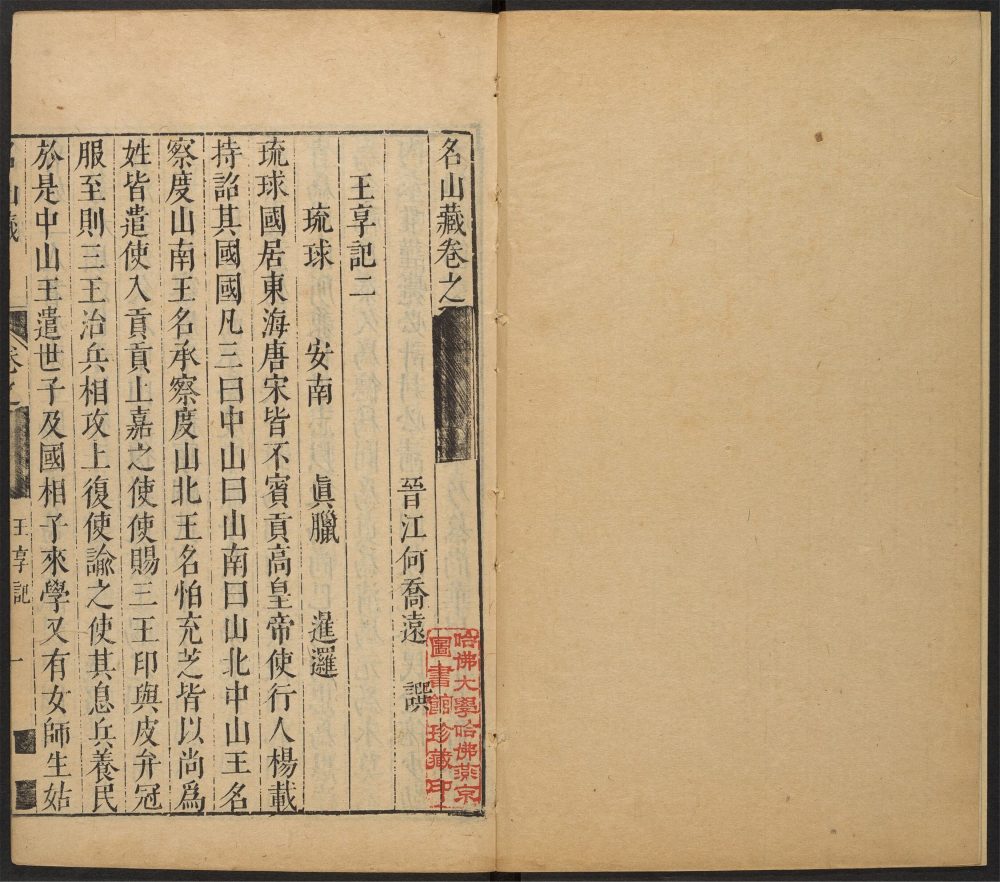 名山藏卷之
晉江何喬遠 譔
王享記二
琉球 安南 眞臘 暹羅
琉球國居東海唐宋皆不賓貢高皇帝使行人楊載
持詔其國國凡三曰中山曰山南曰山北中山王名
察度山南王名承察度山北王名怕充芝皆以尚爲
姓皆遣使入貢貢上嘉之使使賜三王印與皮弁冠
服至則三王治兵相攻上復使諭之使其息兵養民
於是中山王遣世子及國相子來學又有女師生姑
名山藏 卷之 王享記 一
哈佛大學哈佛燕京
圖書館珍藏印